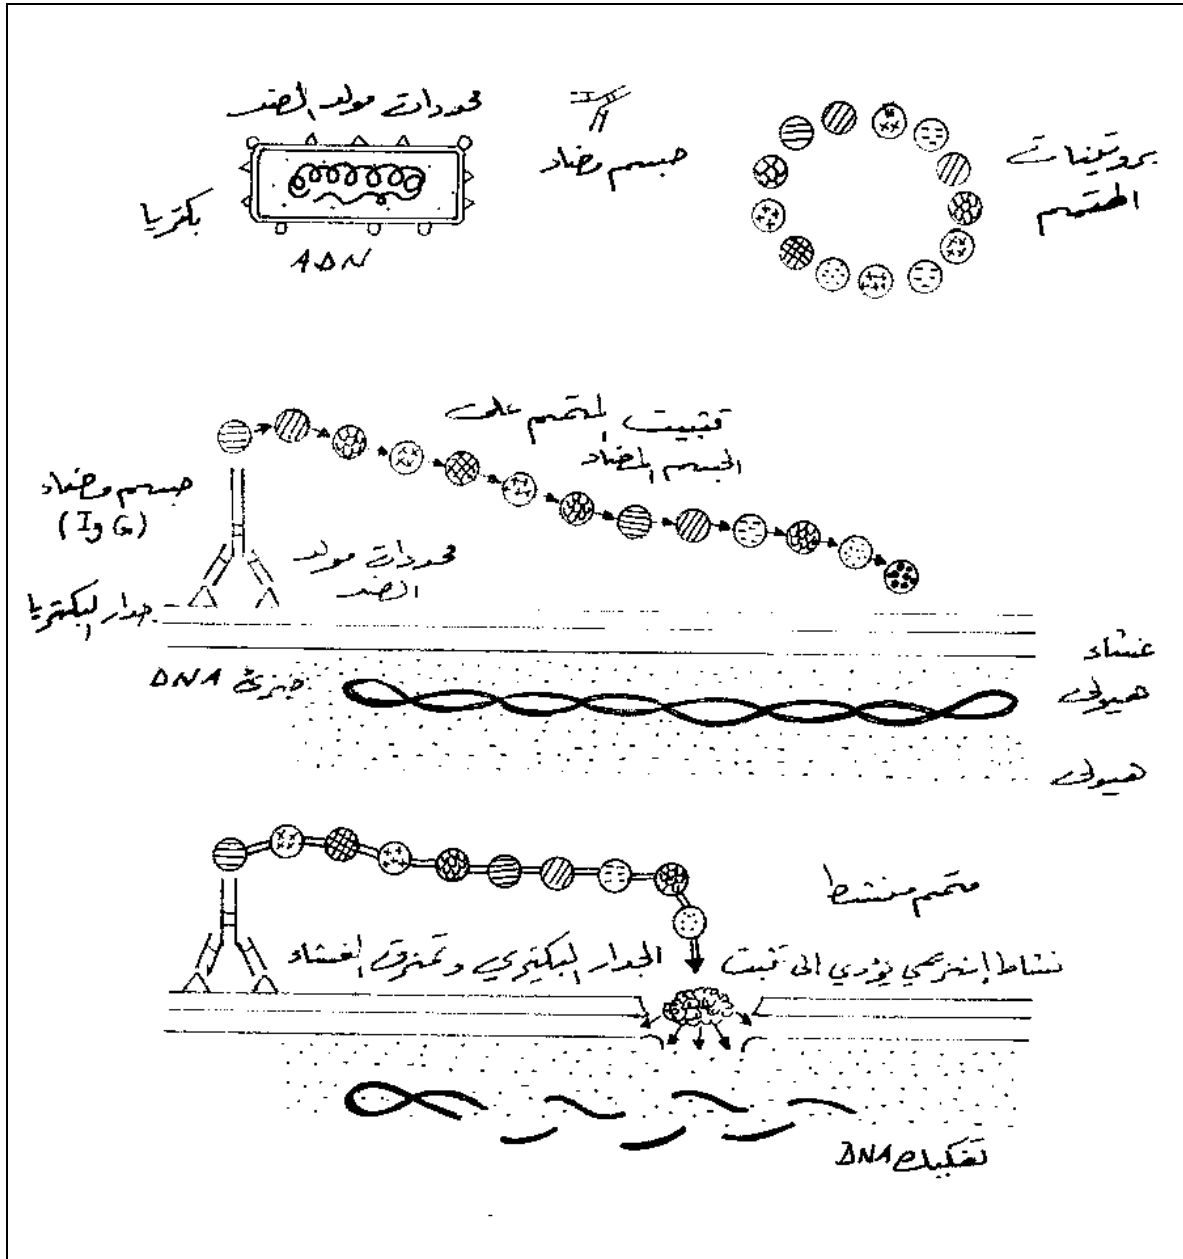 محددات مولد الضد
بكتريا
ADN
جسم مضاد
بروتينات
المتمم
تثبيت المتمم على
الجسم المضاد
جسم مضاد
(IgG)
محددات مولد
الضد
جدار البكتريا
غشاء
جزئ DNA
هيولى
هيولى
متمم منشط
نشاط إنزيمي يؤدي الى تثبت الجدار البكتيري وتمزق الغشاء
تفكيك DNA